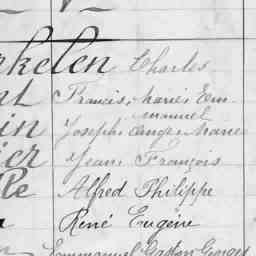 rkelen Charles
nt Francis, Marie, Em-
manuel
in Joseph, Ange, Marie
ier Jean François
lle Alfred Philippe
René Eugène
Emmanuel Gaston Georges